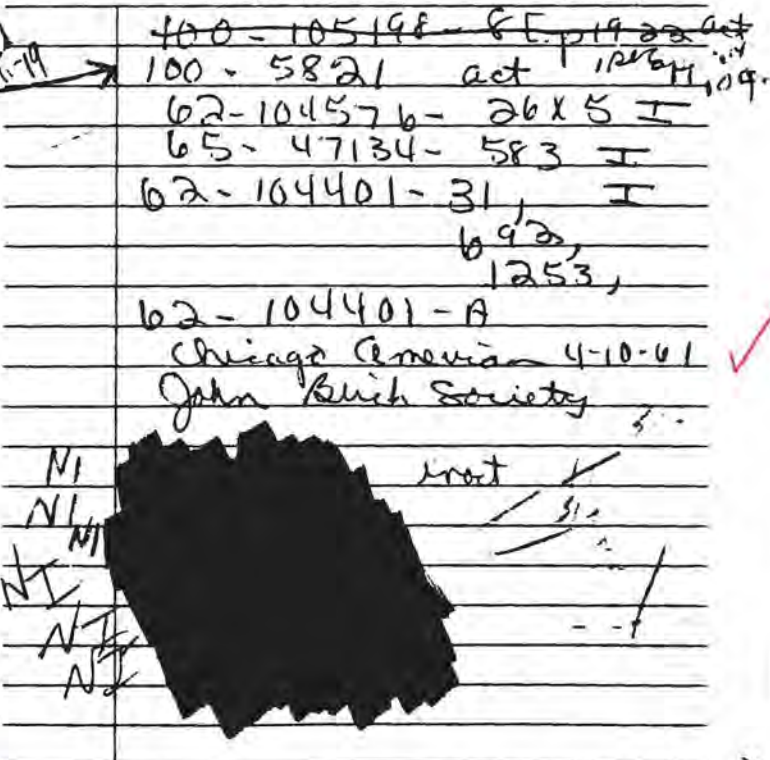 100-105198-8 E.p1922 act
1-19 100-5821 act
62-104576-26X5 I
65-47134-583 I
62-104401-31, I
692,
1253,
62-104401-A
Chicago American 4-10-61
John Birch Society
NI inact
NI
NI
NI
NI
NI